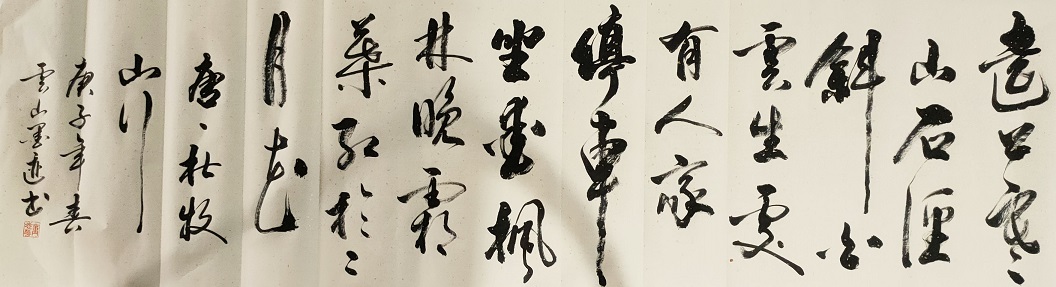 遠上寒
山石徑
斜白
雲生處
有人家
停車
坐愛楓
林晚霜
葉紅於二
月花
唐、杜牧
山行
庚子年春
雲山墨迹书